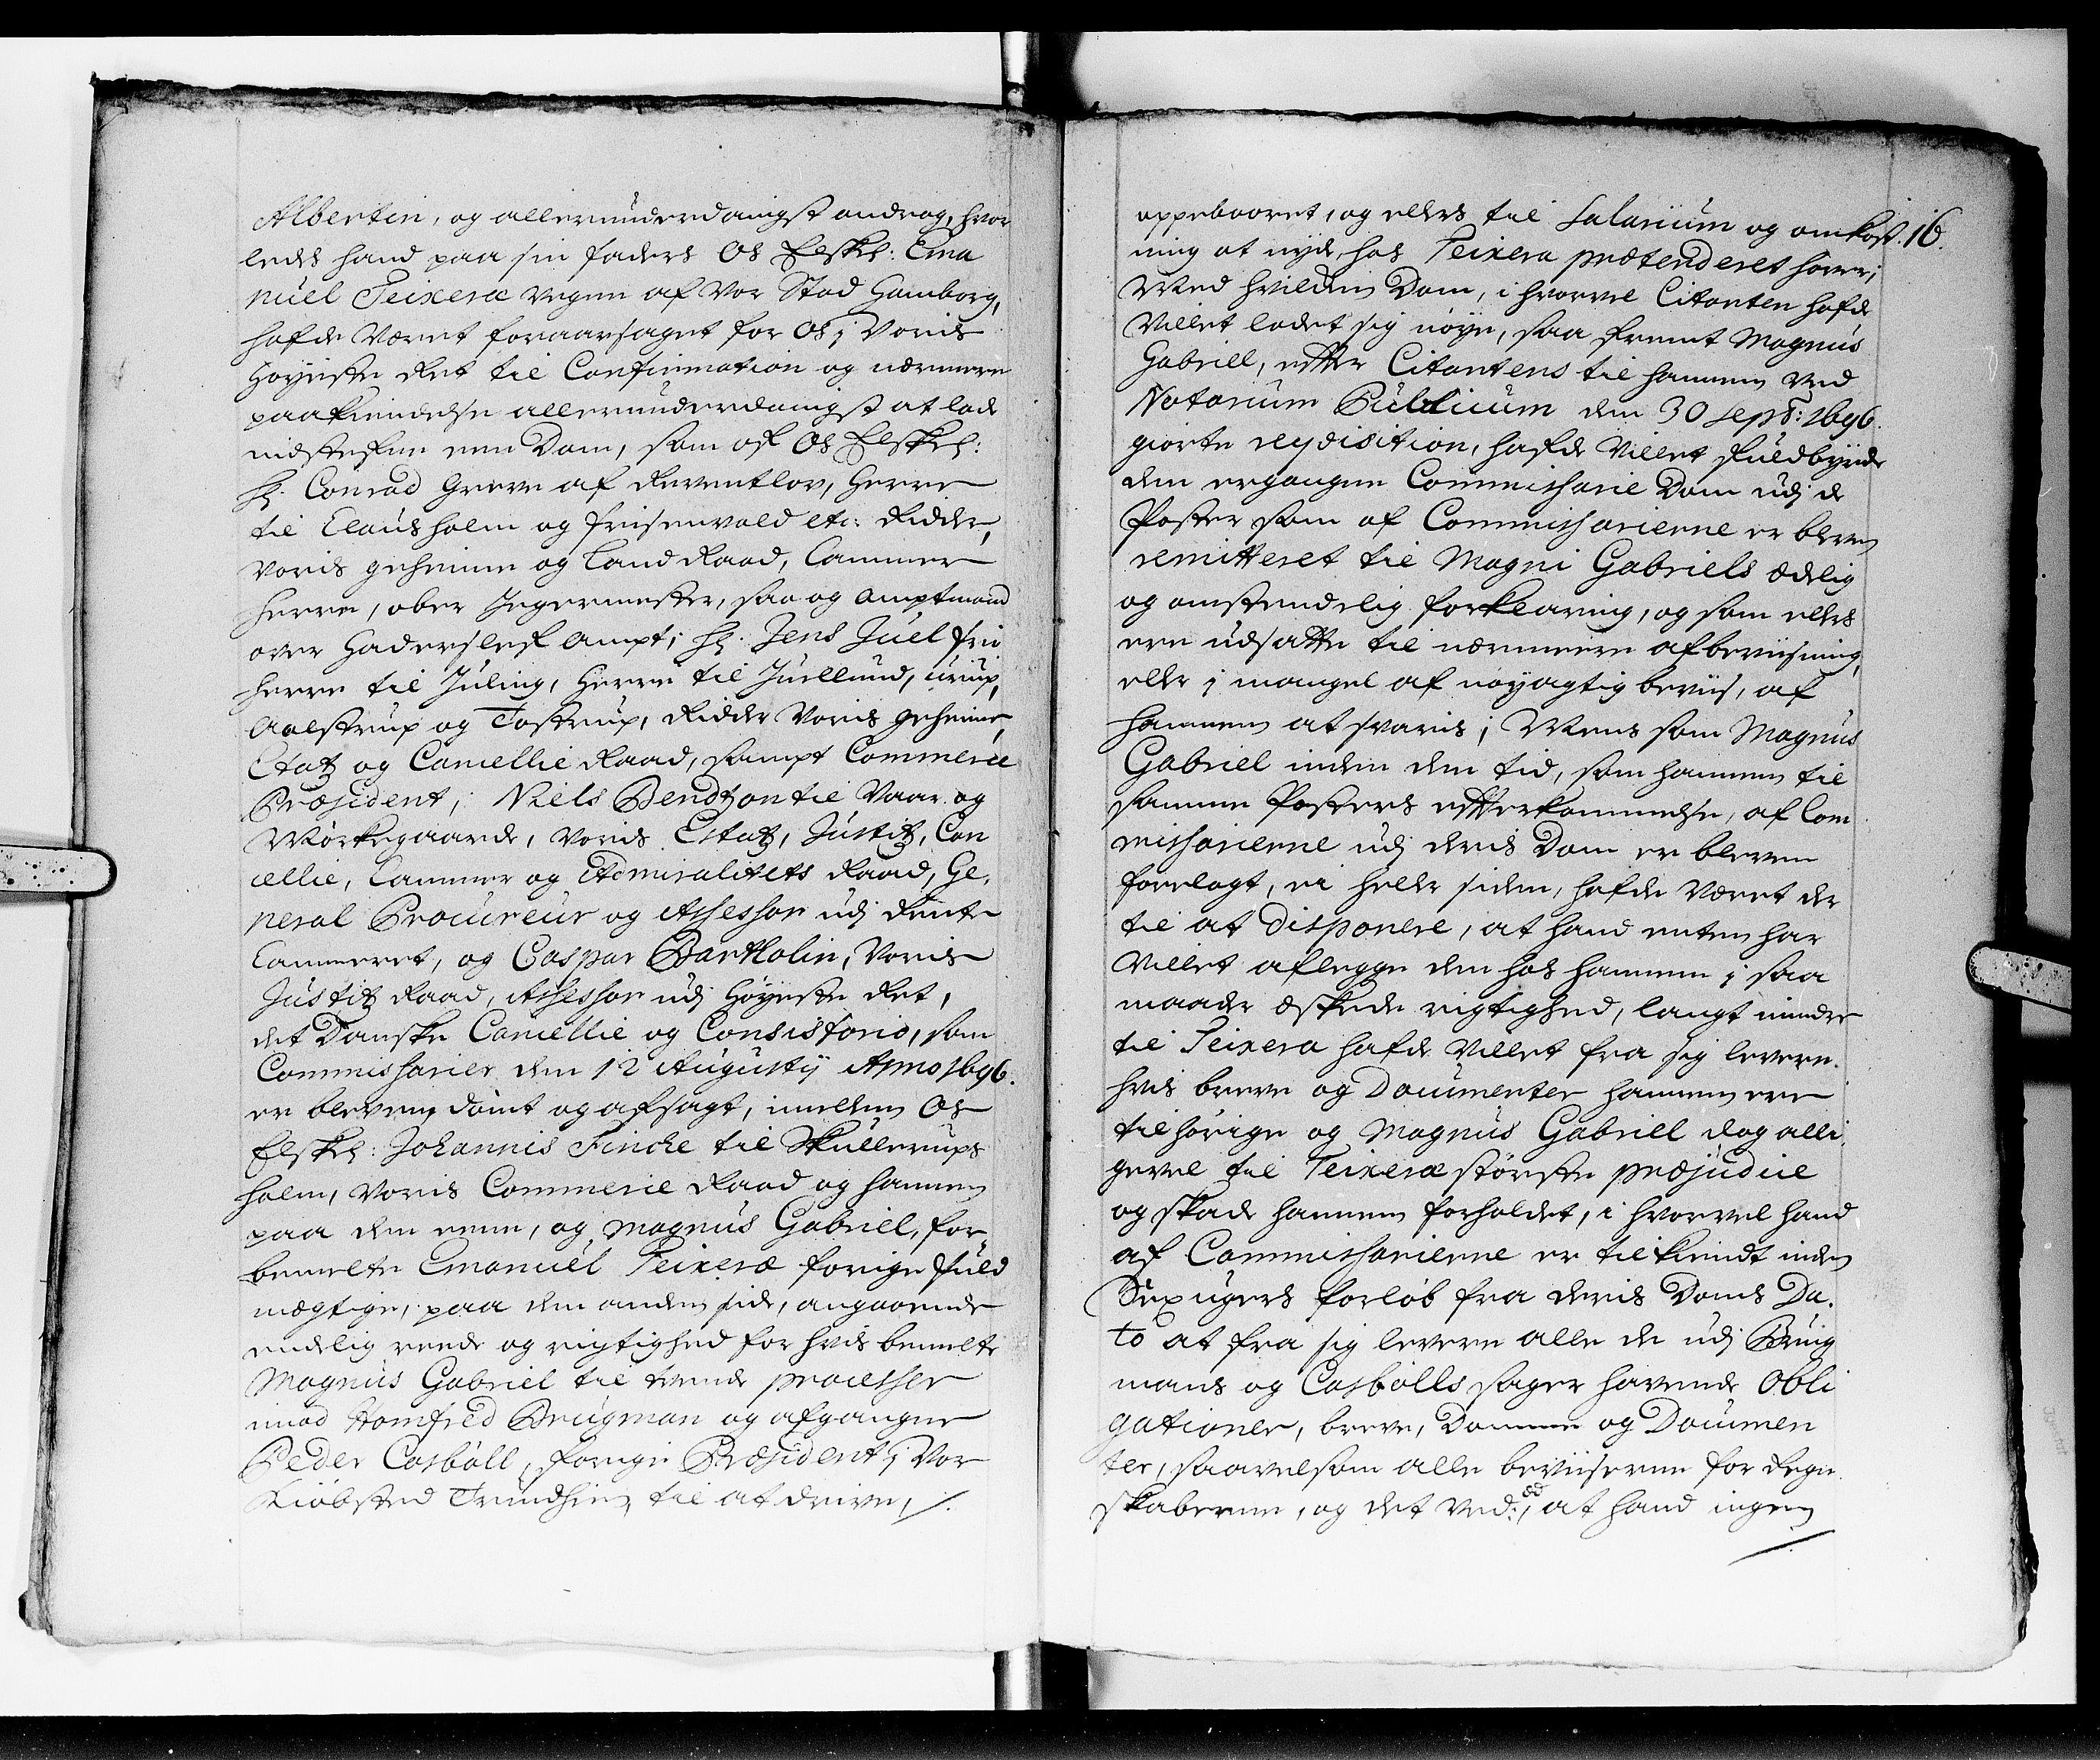 Albertin, og allerunderdanigst andrag, hvor
ledes hand paa sin faders Os Elskel: Ema
nuel Teixeræ vegne af Vor Stad Hamborg,
hafde været foraarsaget for Os i Voris
Høyeste Ret til Confirmation og nærmere
paakiendelse allerunderdanigst at lade
indstefne een Dom, som af Os Elskel:
Hr. Conrad Greve af Reventlov, Herre
til Clausholm og Frisenvold etc: Ridder,
Voris geheime og Land Raad, Cammer
herre, ober Jegermester, saa og Amptmand
over Haderslef Ampt; Hr. Jens Juel fri
herre til Juling, Herre til Juellund, Urup,
Aalstrup og Tostrup, Ridder Voris geheime,
Etatz og Cancellie Raad, sampt Commercie
Præsident; Niels Bendtzon til Vaar og
Mørkegaarde, Voris Estatz, Justitz, Can
cellie, Cammer og Admiralitets Raad, Ge,
neral Procureur og Assessor udj Rente
Cammeret, og Caspar Bartholin, Voris
Justitz Raad, Assessor udj Høyeste Ret,
det Danske Cancellie og Consistorio, som
Commissarier den 12 Augustij Anno 1696.
er bleven dømt og afsagt, imellem Os
Elskel: Johannis Fincke til Skullerups
holm, Voris Commercie Raad og hannem
paa den eene, og Magnus Gabriel, for
bemelte Emanuel Teixeræ forige fuld
mægtige, paa den anden side, angaaende
endelig rende og rigtighed for hvis bemelte
Magnus Gabriel til tvende processer
imod Homfred Brugman og afgangne
Peder Casböll, forige Præsident i Vor
Kiøbsted Trundhiem, til at drive, /.
oppebaaret, og ellers til Salarium og omkost. 16.
ning at nyde, hos Teixera prætenderet haver;
Med hvilcken Dom, i hvorvel Citanten hafde
Villet ladet sig nøye, saa fremt Magnus
Gabriell, efter Citantens til hannem ved
Notarium Publicum den 30 Sept: 1696.
giorte reqvisition, hafde villet fuldbyrde
den ergangne Commissarie Dom udj de
Poster som af Commissarierne er bleven
remitteret til Magni Gabriels ædelig
og omstendelig forklaring, og som ellers
ere udsatte til nærmere afbeviisning,
eller i mangel af nøyagtig beviis, af
hannem at svaris; Mens som Magnus
Gabriel inden den tid, som hannem til
samme Posters efterkommelse, af Com
missarierne udj deris Dom er bleven
forelagt, ei heller siden, hafde været der
til at disponere, at hand enten har
Villet aflegge den hos hannem i saa
maade æskede rigtighed, langt mindre
til Teixera hafde villet fra sig levere.
hvis breve og Documenter hannem ere
tilhørige og Magnus Gabriell dog alli
gevel til Teixeræ største præjudice
og skade hannem forholdet, i hvorvel hand
af Commissarierne er tilkiendt inden
Sex ugers forløb fra deris Doms Da.
to at fra sig levere alle de udj Brug
mans og Casbölls sager havende Obli
gationer, breve, Domme og Documen
ter, saavelsom alle beviiserne for Regn
skaberne, og det ved: æd, at hand ingen